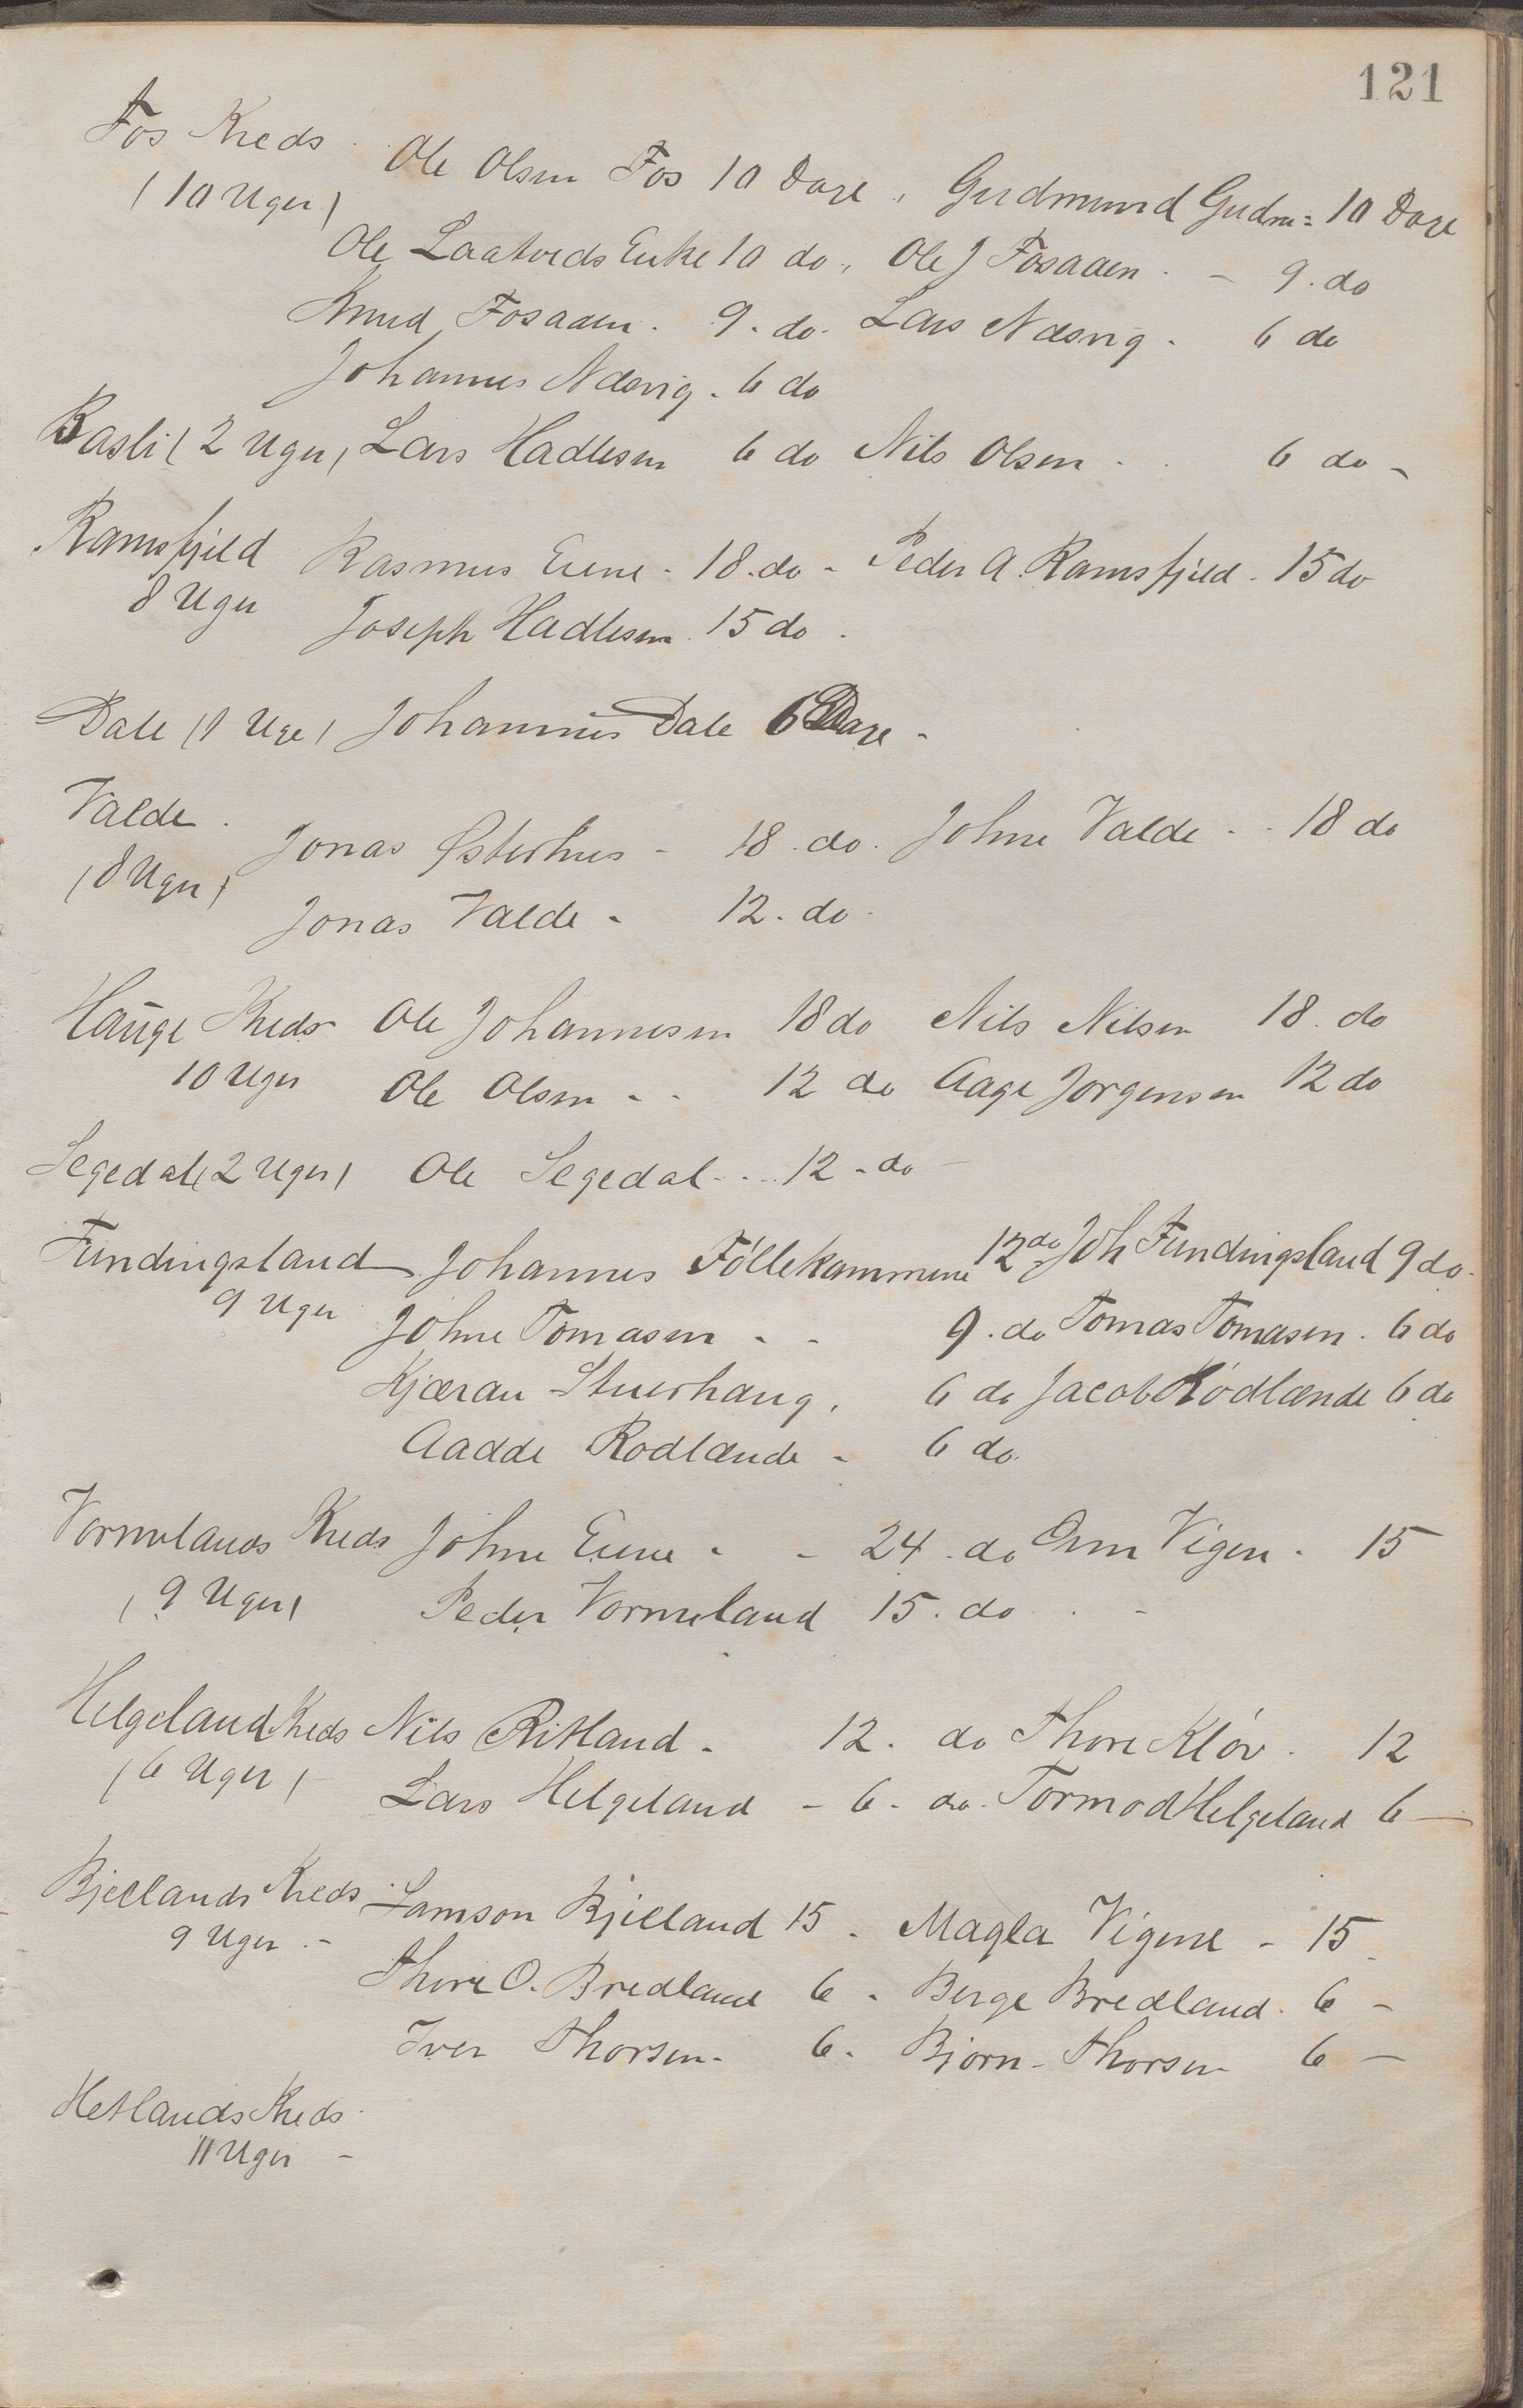 121
Fos Kreds. Ole Olsen Fos 10 Dage, Gudmund Gudm= 10 Dage
(10 Uger)
Ole Laatveds Enke 10 do, Ole J Fosaaen. - 9. do
Knud Fosaaen. 9. do. Lars Næsvig. 6 do
Johannes Næsvig. 6 do
Basli (2 Uger) Lars Hadlesen 6 do Nils Olsen . . 6 do -
Ramsfjeld Rasmus Eiene - 18. do - Peder A. Ramsfjeld - 15 do
8 Uger Joseph Hadlesen 15 do.
Dale (1 Uge) Johannes Dale 6 Dage -
Valde. Jonas Østerhus - 18. do. Johne Valde - - 18 do
(8 Uger) Jonas Valde - 12. do.
Hauge Kreds Ole Johannesen 18 do Nils Nilsen 18. do
10 Uger Ole Olsen - - 12 do Aage Jorgensen 12 do
Segedal (2 Uger) Ole Segedal - .. 12 - do -
Fundingsland Johannes Föllekammene 12 do Joh Fundingsland 9 do.
9 Uger Johne Tomasen - - 9. do Tomas Tomasen. 6 do
Kjæran Stuerhaug, 6 do Jacob Rödlænde 6 do
Aadde Rodlænde - 6 do.
Vormelands Kreds Johne Eiene - - 24. do Orm Vigen - 15
(9 Uger) Peder Vormeland 15. do . -
Helgeland Kreds Nils Ritland - 12. do Thore Klöv. 12
(6 Uger) Lars Helgeland - 6 - do. Tormod Helgeland 6 —
Bjellands Kreds Samson Bjelland 15 - Magla Vigene - 15 -
9 Uger. - Thore O. Bredland 6 - Berge Bredland. 6 -
Iver Thorsen - 6 - Bjorn - Thorsen 6 —
Hetlands Kreds.
11 Uger -